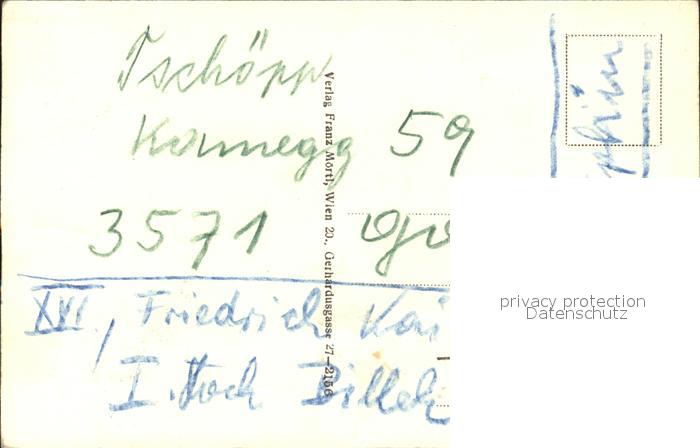 Tschöpp
Kamegg 59
3571
XVI, Friedrich
I. Stock Billek
Verlag Franz Mörtl, Wien 20., Gerhardusgasse 27—2156
privacy protection
Datenschutz